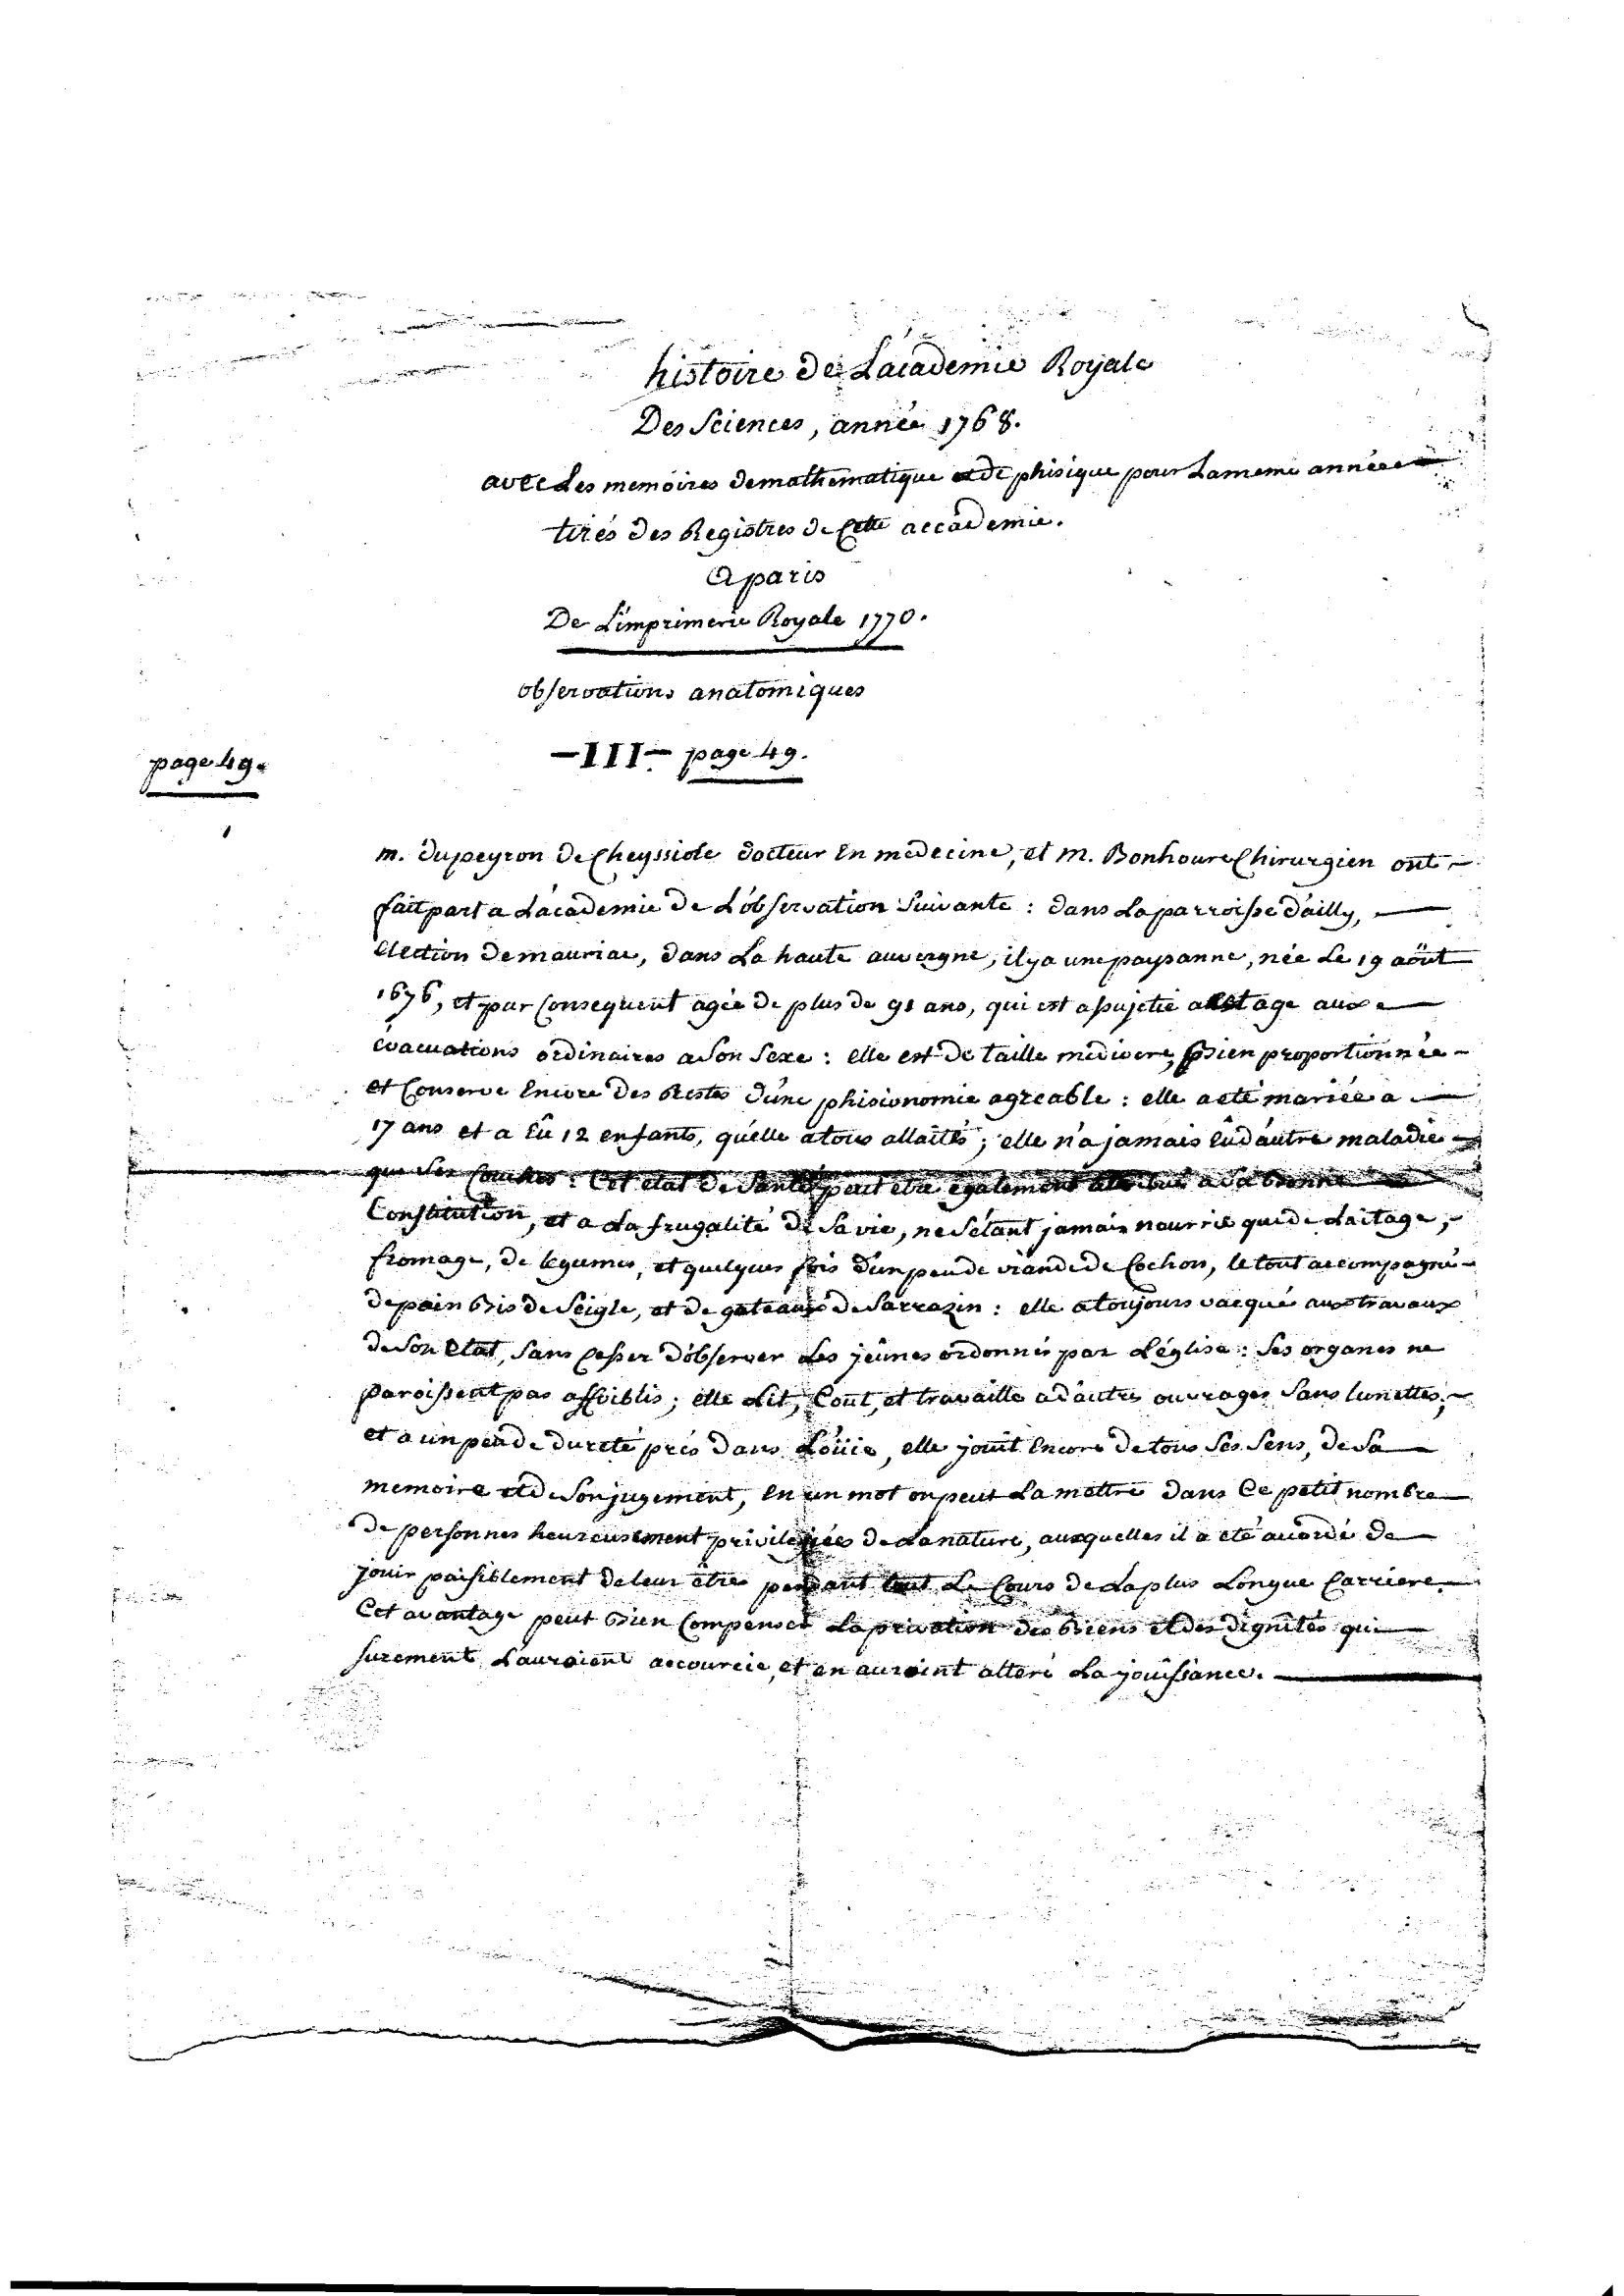 histoire de L'academie Royale
Des Sciences, année 1768.
avec Les memoires de mathematique et de phisique pour La meme année
tirés des Registres de Cette accademie.
A paris
De L'imprimerie Royale 1770.
observations anatomiques
page 49.
— III — page 49.
m. dupeyron de Cheyssiole docteur En medecine, et m. Bonhoure Chirurgien ont
fait part a L'academie de L'observation Suivante : dans La parroisse d'ailly,
Election de mauriac, dans La haute auvergne, il y a une paysanne, née Le 19 août
1676, et par Consequent agée de plus de 91 ans, qui est assujetie a cet age aux
évacuations ordinaires a Son Sexe : elle est de taille mediocre, Bien proportionnée
et Conserve Encore des Restes d'une phisionomie agreable : elle a eté mariée a
17 ans et a Eû 12 enfants, qu'elle a tous allaités ; elle n'a jamais Eû d'autre maladie
que Ses Couches : Cet etat de Santé peut etre egalement attribué a Sa bonne
Constitution, et a La frugalité de Sa vie, ne S'étant jamais nourrie que de Laitage,
fromage, de legumes, et quelques fois d'un peu de viande de Cochon, le tout accompagné
de pain Bis de Seigle, et de gateaux de Sarrazin : elle a toujours vacqué aux travaux
de Son Etat, Sans Cesser d'observer Les jeûnes ordonnés par L'église : Ses organes ne
paroissent pas affoiblis ; elle Lit, Cout, et travaille a d'autres ouvrages Sans lunettes ;
et a un peu de dureté près dans L'oüie, elle jouit Encore de tous Ses Sens, de Sa
memoire et de Son jugement, En un mot on peut La mettre dans Ce petit nombre
de personnes heureusement privilegiées de La nature, auxquelles il a eté accordé de
jouir paisiblement de leur être pendant tout Le Cours de La plus Longue Carriere.
Cet avantage peut Bien Compenser La privation des Biens et des dignités qui
surement L'auroient accourcie, et en auroint alteré La jouissance.